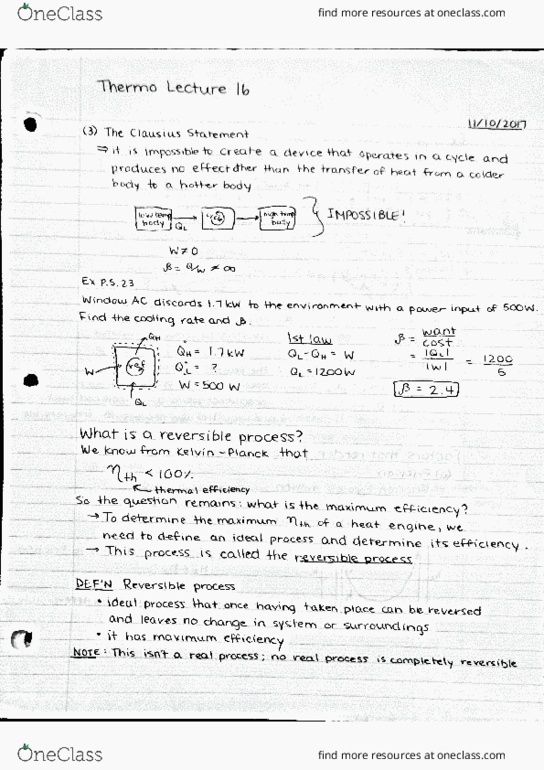 OneClass
find more resources at oneclass.com
Thermo Lecture 16
11/10/2017
(3) The Clausius Statement
⇒ it is impossible to create a device that operates in a cycle and
produces no effect other than the transfer of heat from a colder
body to a hotter body
low temp body QL → → high temp body } IMPOSSIBLE!
W ≠ 0
β = Q/W ≠ ∞
Ex P.5.23
Window AC discards 1.7 kW to the environment with a power input of 500W.
Find the cooling rate and β.
QH
W → ref
QL
Q̇H = 1.7 kW
Q̇L = ?
W = 500 W
1st law
QL - QH = W
QL = 1200W
β = want/cost
= |QL|/|W| = 1200/5
β = 2.4
What is a reversible process?
We know from Kelvin-Planck that
ηth < 100%
thermal efficiency
So the question remains: what is the maximum efficiency?
→ To determine the maximum ηth of a heat engine, we
need to define an ideal process and determine its efficiency.
→ This process is called the reversible process
DEF'N Reversible process
• ideal process that once having taken place can be reversed
and leaves no change in system or surroundings
• it has maximum efficiency
NOTE: This isn't a real process; no real process is completely reversible
OneClass
find more resources at oneclass.com